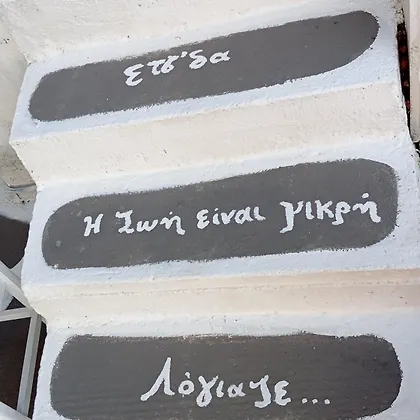 Η Ζωή είναι μικρή
Λόγιαζε...